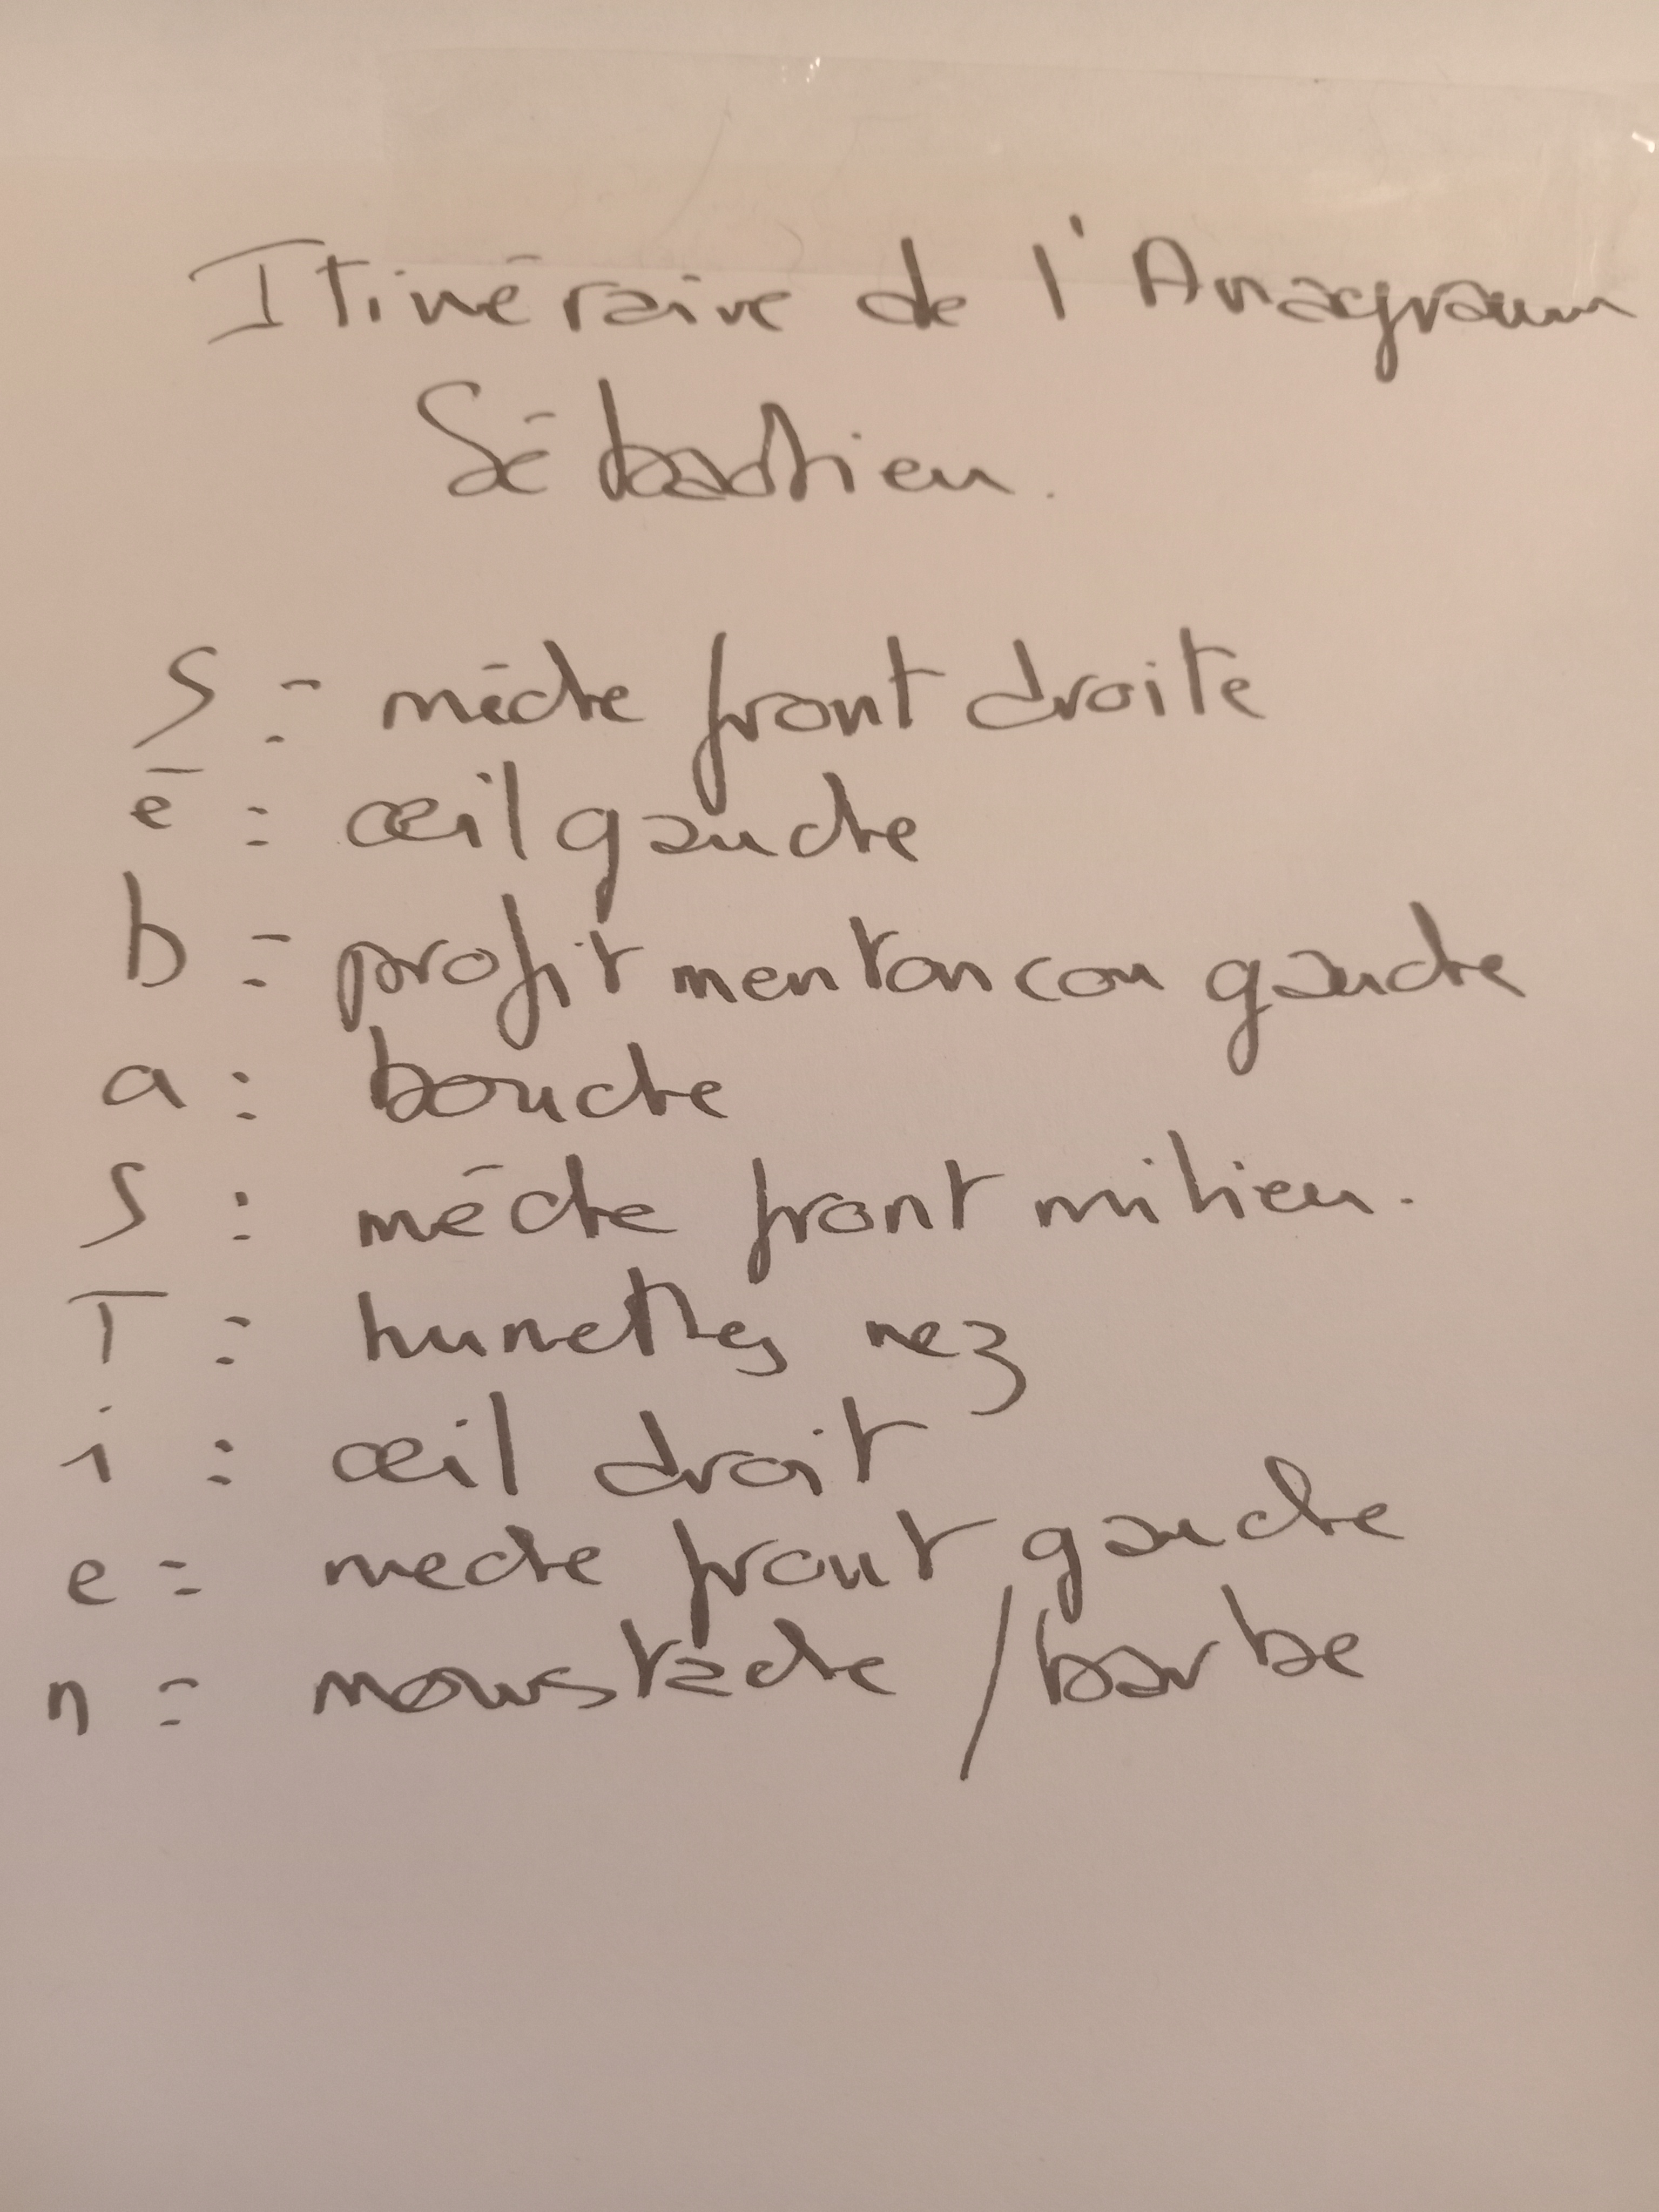 Itinéraire de l'Anagramm
Sébastien.
S : mèche front droite
é : œil gauche
b : profit menton cou gauche
a : bouche
S : mèche front milieu.
T : lunettes nez
i : œil droit
e : meche front gauche
n : moustache / barbe